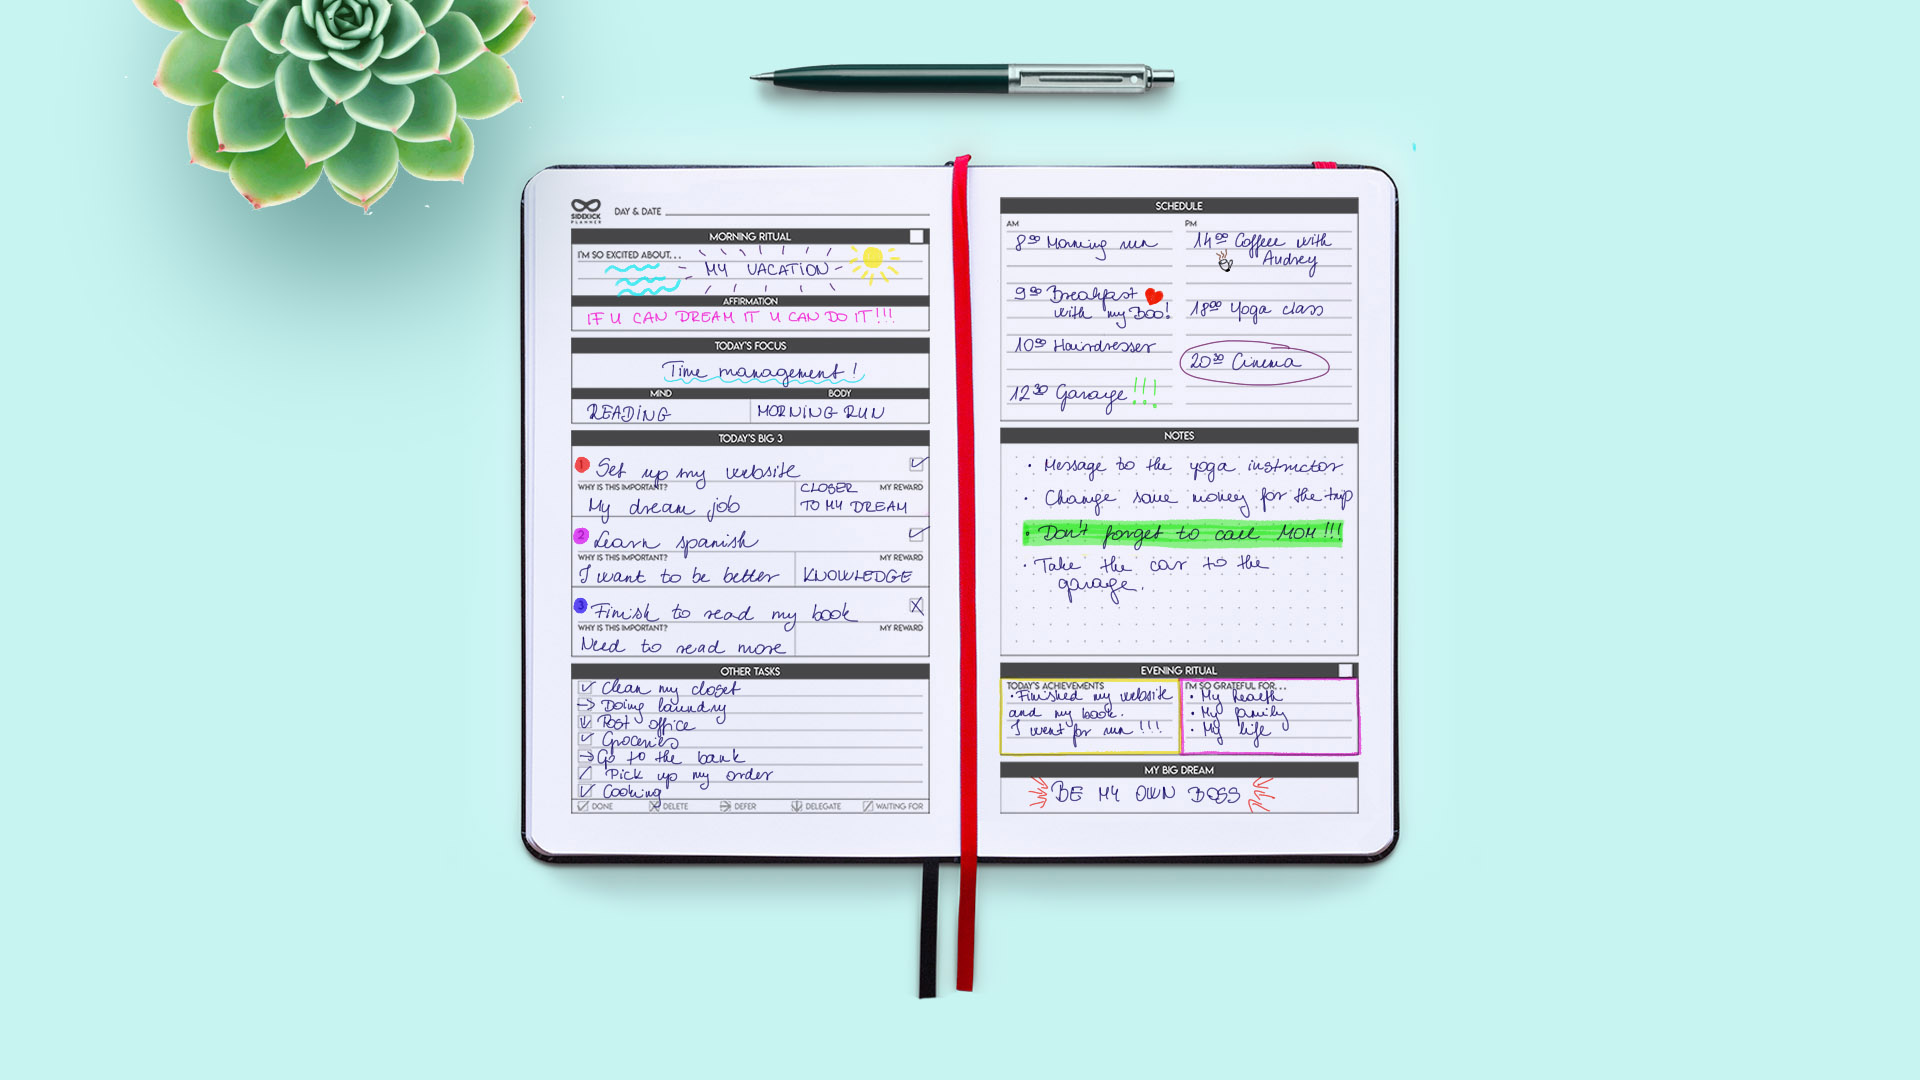 SIDEKICK
PLANNER
DAY & DATE
MORNING RITUAL
I'M SO EXCITED ABOUT...
MY VACATION
AFFIRMATION
IF U CAN DREAM IT U CAN DO IT!!!
TODAY'S FOCUS
Time management!
MIND BODY
READING MORNING RUN
TODAY'S BIG 3
1 Set up my website
WHY IS THIS IMPORTANT? MY REWARD
My dream job CLOSER
TO MY DREAM
2 Learn spanish
WHY IS THIS IMPORTANT? MY REWARD
I want to be better KNOWLEDGE
3 Finish to read my book
WHY IS THIS IMPORTANT? MY REWARD
Need to read more
OTHER TASKS
Clean my closet
Doing laundry
Post office
Groceries
Go to the bank
Pick up my order
Cooking
DONE DELETE DEFER DELEGATE WAITING FOR
SCHEDULE
AM
8 00 Morning run
9 00 Breakfast
with my Boo!
10 00 Hairdresser
12 30 Garage !!!
PM
14 00 Coffee with
Audrey
18 00 Yoga class
20 30 Cinema
NOTES
• Message to the yoga instructor
• Change some money for the trip
• Don't forget to call MOM!!!
• Take the car to the
garage.
EVENING RITUAL
TODAY'S ACHIEVEMENTS
• Finished my website
and my book.
I went for run !!!
I'M SO GRATEFUL FOR...
• My health
• My family
• My life
MY BIG DREAM
BE MY OWN BOSS